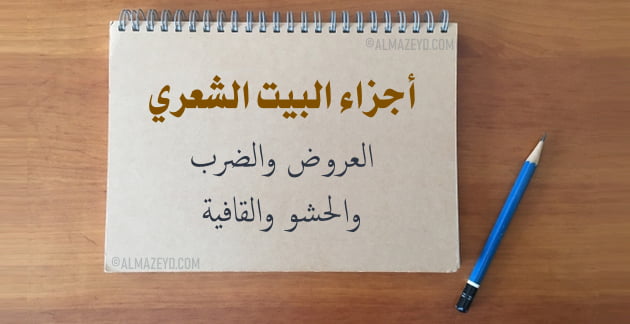 ©ALMAZEYD.COM
أجزاء البيت الشعري
العروض والضرب
والحشو والقافية
©ALMAZEYD.COM